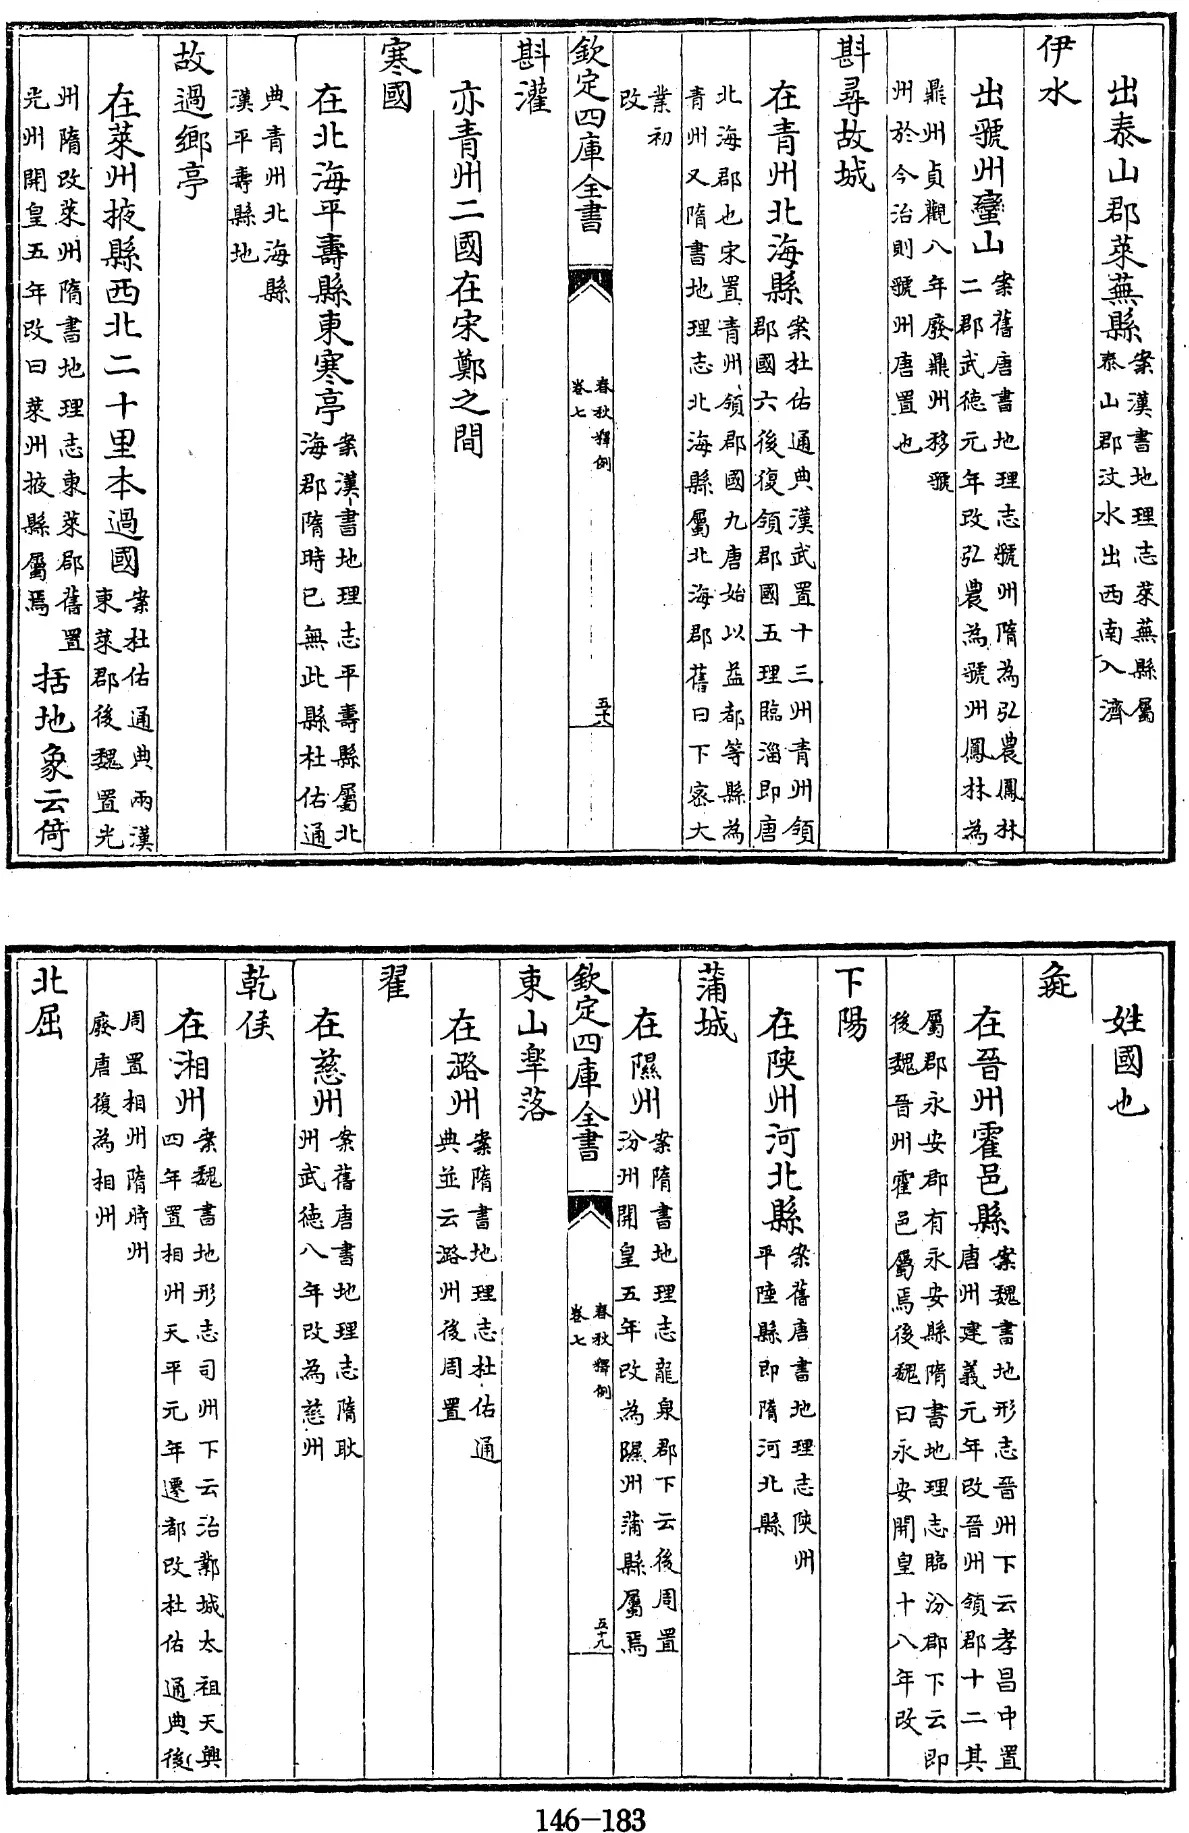 出泰山郡萊蕪縣案漢書地理志萊蕪縣屬
泰山郡汶水出西南入濟
伊水
出虢州蠻山案舊唐書地理志虢州隋為弘農鳳林
二郡武德元年改弘農為虢州鳳林為
鼎州貞觀八年廢鼎州移虢
州於今治則虢州唐置也
斟尋故城
在青州北海縣案杜佑通典漢武置十三州青州領
郡國六後復領郡國五理臨淄即唐
北海郡也宋置青州領郡國九唐始以益都等縣為
青州又隋書地理志北海縣屬北海郡舊曰下密大
業初
改
欽定四庫全書
春秋釋例
卷七
五十八
斟灌
亦青州二國在宋鄭之間
寒國
在北海平壽縣東寒亭案漢書地理志平壽縣屬北
海郡隋時已無此縣杜佑通
典青州北海縣
漢平壽縣地
故過鄉亭
在萊州掖縣西北二十里本過國案杜佑通典兩漢
東萊郡後魏置光
州隋改萊州隋書地理志東萊郡舊置
光州開皇五年改曰萊州掖縣屬焉
括地象云倚
姓國也
彘
在晉州霍邑縣案魏書地形志晉州下云孝昌中置
唐州建義元年改晉州領郡十二其
屬郡永安郡有永安縣隋書地理志臨汾郡下云即
後魏晉州霍邑屬焉後魏曰永安開皇十八年改
下陽
在陝州河北縣案舊唐書地理志陝州
平陸縣即隋河北縣
蒲城
在隰州案隋書地理志龍泉郡下云後周置
汾州開皇五年改為隰州蒲縣屬焉
欽定四庫全書
春秋釋例
卷七
五十九
東山皋落
在潞州案隋書地理志杜佑通
典並云潞州後周置
翟
在慈州案舊唐書地理志隋耿
州武德八年改為慈州
乾侯
在湘州案魏書地形志司州下云治鄴城太祖天興
四年置相州天平元年遷都改杜佑通典後
周置相州隋時州
廢唐復為相州
北屈
146-183